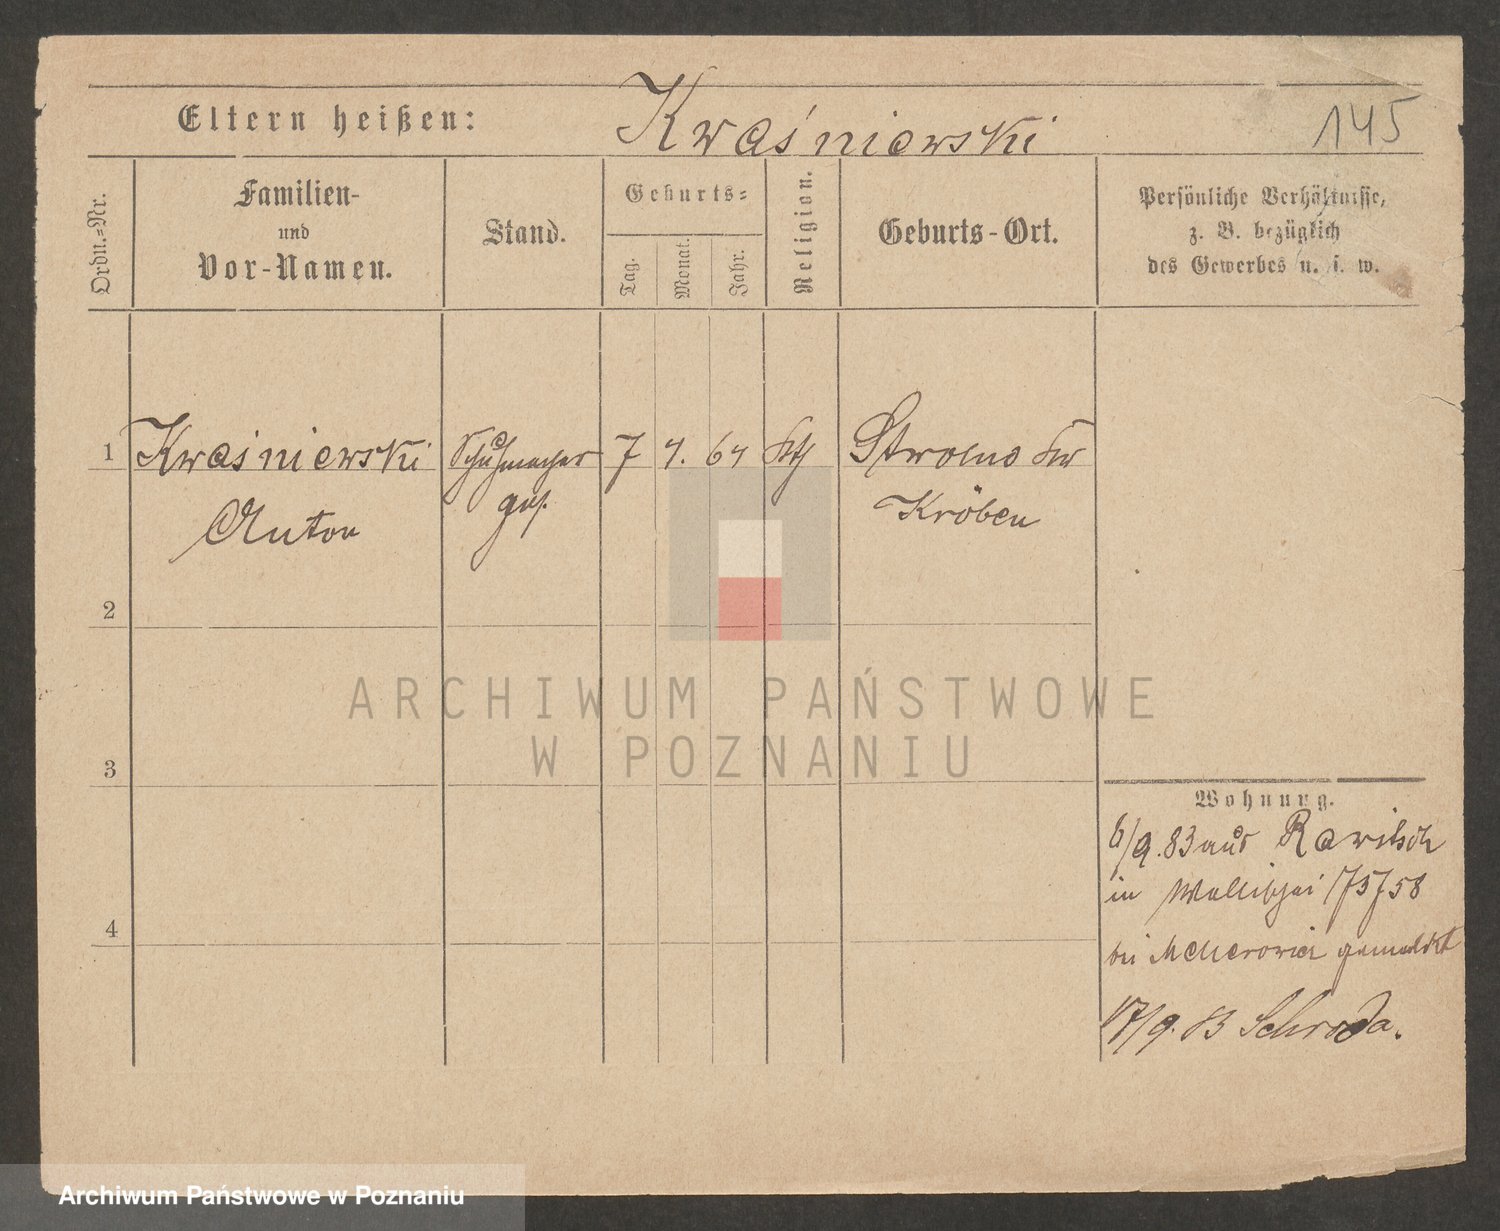 Eltern heißen: Kwaśniewski 145
Ordn.=Nr.
Familien-
und
Vor-Namen.
Stand.
Geburts=
Tag.
Monat.
Jahr.
Religion.
Geburts-Ort.
Persönliche Verhältnisse,
z. B. bezüglich
des Gewerbes u. s. w.
1 Kwaśniewski Schuhmacher 7 4. 64 kth
Anton ges. Kröben
2
3
4
ARCHIWUM PAŃSTWOWE
W POZNANIU
Wohnung.
6/9.83 aus Rawitsch
in Wallischei
bei gemeldet
17/9. 83 Schroda.
Archiwum Państwowe w Poznaniu